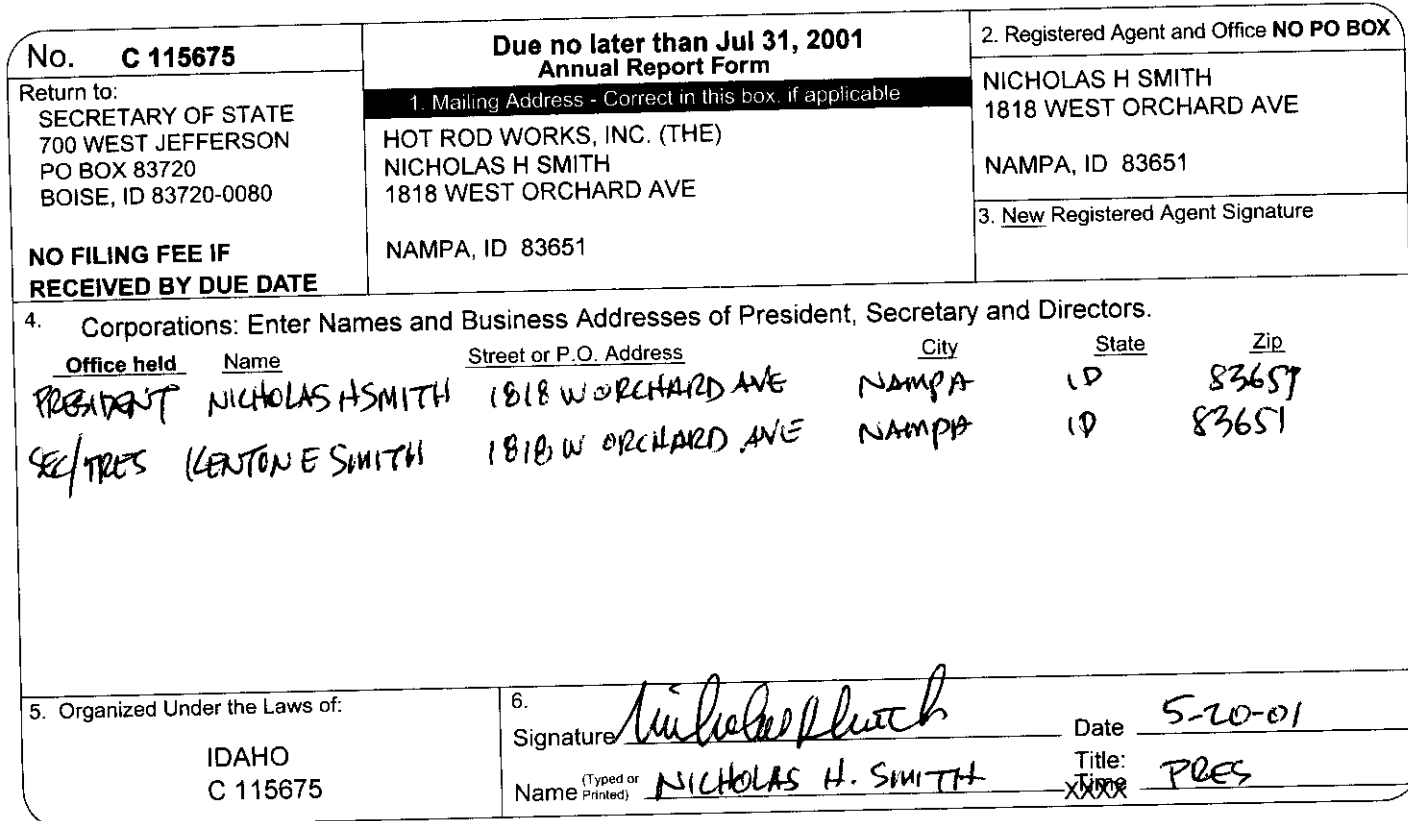 No. C 115675
Return to:
SECRETARY OF STATE
700 WEST JEFFERSON
PO BOX 83720
BOISE, ID 83720-0080
NO FILING FEE IF
RECEIVED BY DUE DATE
Due no later than Jul 31, 2001
Annual Report Form
1. Mailing Address - Correct in this box, if applicable
HOT ROD WORKS, INC. (THE)
NICHOLAS H SMITH
1818 WEST ORCHARD AVE
NAMPA, ID 83651
2. Registered Agent and Office NO PO BOX
NICHOLAS H SMITH
1818 WEST ORCHARD AVE
NAMPA, ID 83651
3. New Registered Agent Signature
4. Corporations: Enter Names and Business Addresses of President, Secretary and Directors.
Office held Name Street or P.O. Address City State Zip
PRESIDENT NICHOLAS H SMITH 1818 W ORCHARD AVE NAMPA ID 83651
SEC/TRES KENTON E SMITH 1818 W ORCHARD AVE NAMPA ID 83651
5. Organized Under the Laws of:
IDAHO
C 115675
6.
Signature Date 5-20-01
Name (Typed or Printed) NICHOLAS H. SMITH Title: PRES